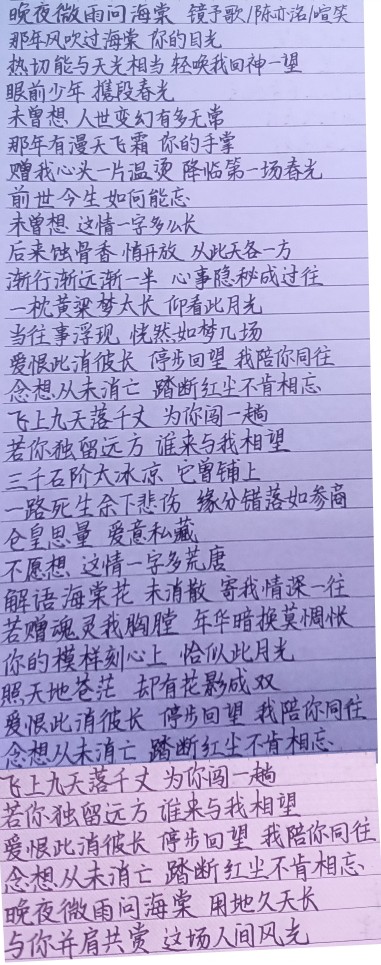 晚夜微雨问海棠 镜予歌/陈亦洺/喧笑
那年风吹过海棠 你的目光
热切能与天光相当 轻唤我回神一望
眼前少年 携段春光
未曾想 人世变幻有多无常
那年有漫天飞霜 你的手掌
赠我心头一片温烫 降临第一场春光
前世今生如何能忘
未曾想 这情一字多么长
后来蚀骨香 情开放 从此天各一方
渐行渐远渐一半 心事隐秘成过往
一枕黄粱梦太长 仰看此月光
当往事浮现 恍然如梦几场
爱恨此消彼长 停步回望 我陪你同往
念想从未消亡 踏断红尘不肯相忘
飞上九天落千丈 为你闯一趟
若你独留远方 谁来与我相望
三千石阶太冰凉 它曾铺上
一路死生余下悲伤 缘分错落如参商
仓皇思量 爱意私藏
不愿想 这情一字多荒唐
解语海棠花 未消散 寄我情深一往
若赠魂灵我胸膛 年华暗换莫惆怅
你的模样刻心上 恰似此月光
照天地苍茫 却有花影成双
爱恨此消彼长 停步回望 我陪你同往
念想从未消亡 踏断红尘不肯相忘
飞上九天落千丈 为你闯一趟
若你独留远方 谁来与我相望
爱恨此消彼长 停步回望 我陪你同往
念想从未消亡 踏断红尘不肯相忘
晚夜微雨问海棠 用地久天长
与你并肩共赏 这场人间风光